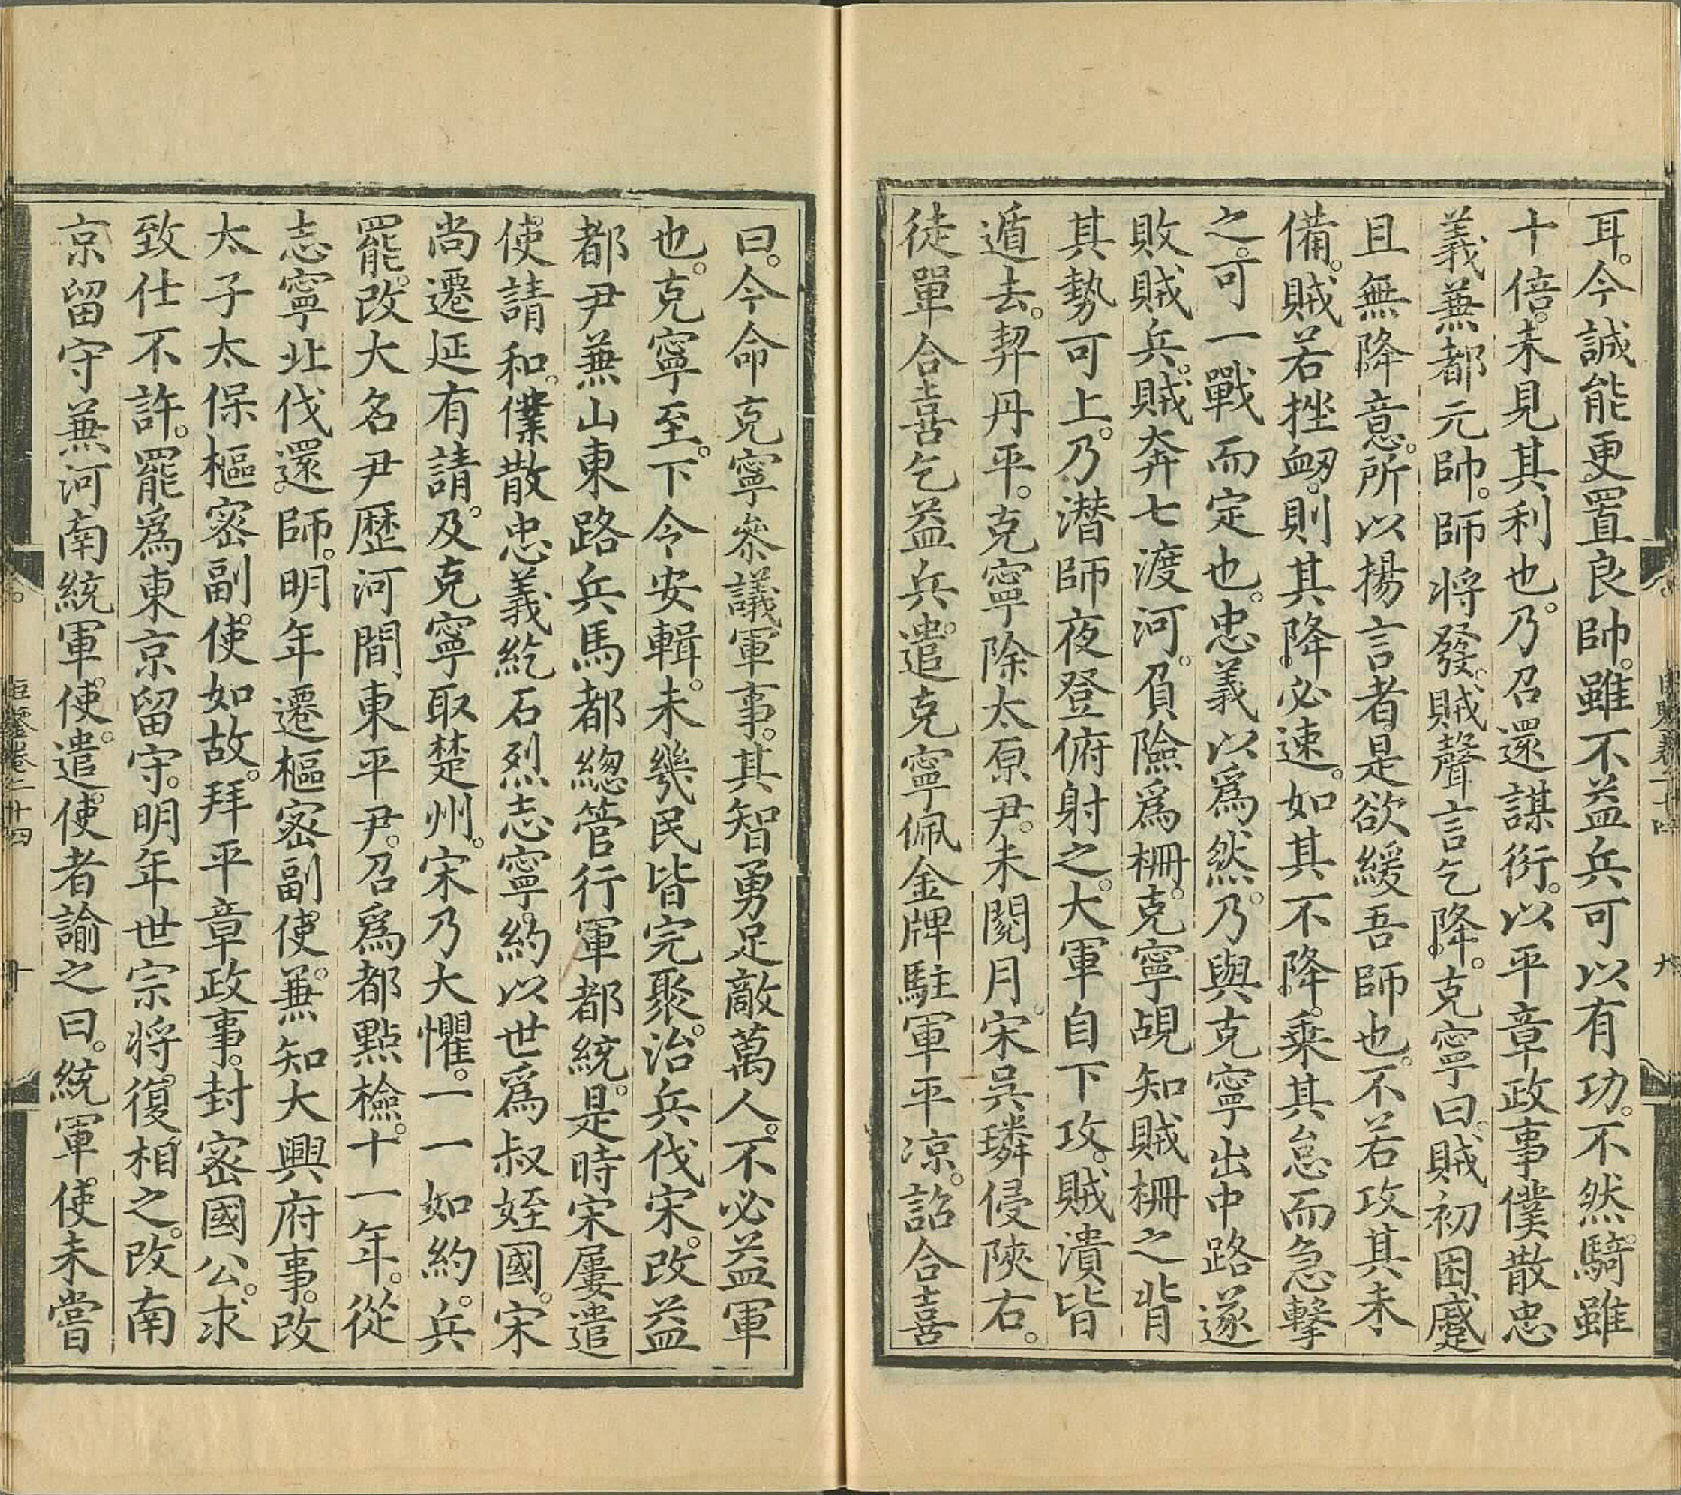 耳。今誠能更置良帥。雖不益兵可以有功。不然。騎雖
十倍。未見其利也。乃召還謀衍。以平章政事僕散忠
義兼都元帥。師將發。賊聲言乞降。克寧曰。賊初困蹙
且無降意。所以揚言者是欲緩吾師也。不若攻其未
備。賊若挫衂。則其降必速。如其不降。乘其怠而急擊
之。可一戰而定也。忠義以爲然。乃與克寧出中路遂
敗賊兵。賊奔七渡河。負險爲柵。克寧覘知賊柵之背
其勢可上。乃潛師夜登俯射之。大軍自下攻。賊潰皆
遁去。契丹平。克寧除太原尹。未閱月。宋吳璘侵陝右。
徒單合喜乞益兵。遣克寧佩金牌駐軍平凉。詔合喜
曰。今命克寧參議軍事。其智勇足敵萬人。不必益軍
也。克寧至。下令安輯。未幾民皆完聚。治兵伐宋。改益
都尹兼山東路兵馬都總管行軍都統。是時宋屢遣
使請和。僕散忠義紇石烈志寧約以世爲叔姪國。宋
尚遷延有請。及克寧取楚州。宋乃大懼。一一如約。兵
罷。改大名尹歷河間東平尹。召爲都點檢。十一年。從
志寧北伐還師。明年遷樞密副使。兼知大興府事。改
太子太保樞密副使如故。拜平章政事。封密國公。求
致仕不許。罷爲東京留守。明年世宗將復相之。改南
京留守兼河南統軍使。遣使者諭之曰。統軍使未嘗
卷二十四
九
卷二十四
十